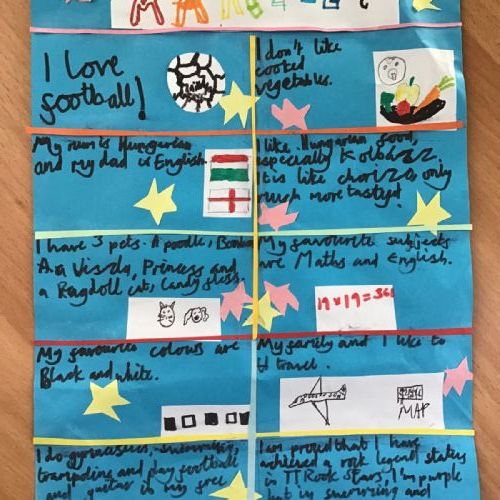 I love
football!
I don't like
cooked
vegetables.
My mum is Hungarian
and my dad is English.
I like Hungarian food,
especially Kolbazz.
It is like chorizo only
much more tastyer!
I have 3 pets. A poodle,
A Visla, Princess and
a Ragdoll cat, Candy floss.
My favourite subjects
are Maths and English.
19x19=361
My favourite colours are
Black and white.
My family and I like to
travel.
MAP
I do gymnastics, swimming,
trampoline and play football
and guitar in my free
I am proud that I have
achieved a rock legend status
in TT Rock Stars, I'm purple
in swimming and